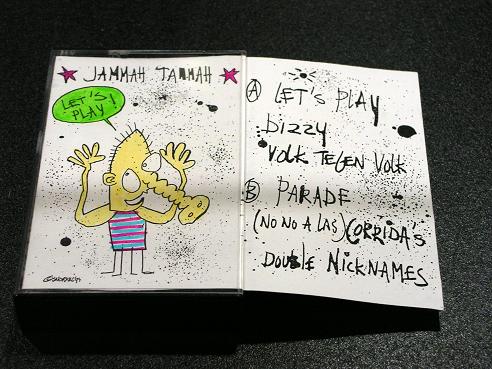 JAMMAH TAMMAH
LET'S
PLAY!
A LET'S PLAY
DIZZY
VOLK TEGEN VOLK
B PARADE
(NO NO A LAS) CORRIDA'S
DOUBLE NICKNAMES